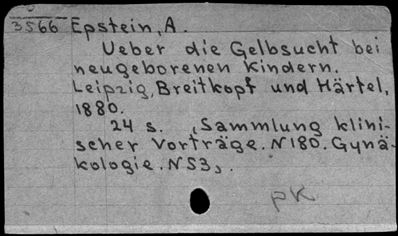 3566 Epstein, A.
Ueber die Gelbsucht bei
neugeborenen Kindern.
Leipzig, Breitkopf und Härtel,
1880.
24 s. ,Sammlung klini-
scher Vorträge. N180. Gynä-
kologie. N53,.
pK